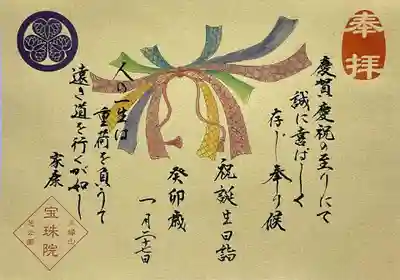 奉拝
慶賀慶祝の至りにて
誠に喜ばしく
存じ奉り候
祝誕生日詣
癸卯歳
一月二十七日
人の一生は
重荷を負うて
遠き道を行くが如し
家康
三縁山
宝珠院
芝公園